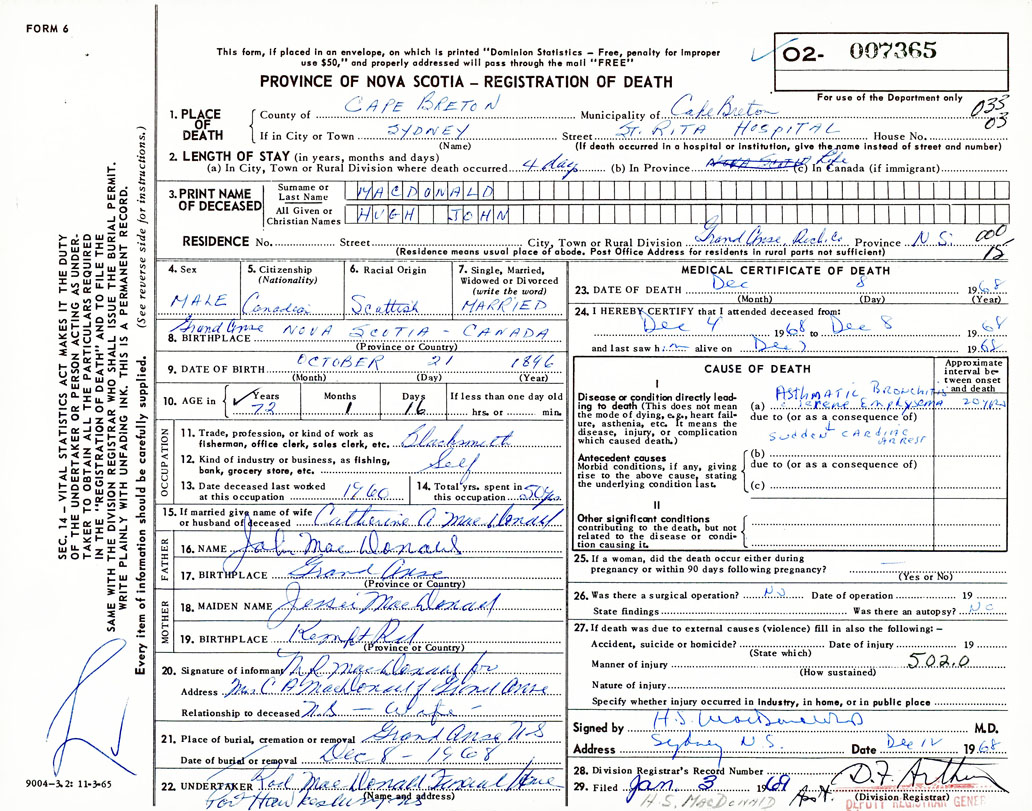 FORM 6
This form, if placed in an envelope, on which is printed "Dominion Statistics – Free, penalty for improper
use $50," and properly addressed will pass through the mail "FREE"
O2- 007365
PROVINCE OF NOVA SCOTIA – REGISTRATION OF DEATH
For use of the Department only
1. PLACE OF DEATH
County of CAPE BRETON Municipality of Cape Breton 033
If in City or Town SYDNEY Street St. RITA HOSPITAL House No. 03
(Name) (If death occurred in a hospital or institution, give the name instead of street and number)
2. LENGTH OF STAY (in years, months and days)
(a) In City, Town or Rural Division where death occurred 4 day (b) In Province Life (c) In Canada (if immigrant)
3. PRINT NAME OF DECEASED
Surname or Last Name MACDONALD
All Given or Christian Names HUGH JOHN
RESIDENCE No. Street City, Town or Rural Division Grand Anse, Rich. Co Province N.S. 000
(Residence means usual place of abode. Post Office Address for residents in rural parts not sufficient) 15
4. Sex MALE
5. Citizenship (Nationality) Canadian
6. Racial Origin Scottish
7. Single, Married, Widowed or Divorced (write the word) MARRIED
Grand Anse NOVA SCOTIA – CANADA
8. BIRTHPLACE
(Province or Country)
9. DATE OF BIRTH OCTOBER 21 1896
(Month) (Day) (Year)
10. AGE in Years 72 Months 1 Days 16 If less than one day old hrs. or min.
OCCUPATION
11. Trade, profession, or kind of work as fisherman, office clerk, sales clerk, etc. Blacksmith
12. Kind of industry or business, as fishing, bank, grocery store, etc. Self
13. Date deceased last worked at this occupation 1960
14. Total yrs. spent in this occupation 50 yrs.
15. If married give name of wife or husband of deceased Catherine A. MacDonald
FATHER
16. NAME John MacDonald
17. BIRTHPLACE Grand Anse
(Province or Country)
MOTHER
18. MAIDEN NAME Jessie MacDonald
19. BIRTHPLACE Kempt Rd
(Province or Country)
20. Signature of informant N.R. MacDonald for
Address Mrs. C A MacDonald Grand Anse
Relationship to deceased N.S – Wife –
21. Place of burial, cremation or removal Grand Anse N.S
Date of burial or removal Dec 8 - 1968
22. UNDERTAKER Rod MacDonald Funeral Home
Port Hawkesbury NS
(Name and address)
9004-3.2: 11-3-65
SEC. 14 – VITAL STATISTICS ACT MAKES IT THE DUTY
OF THE UNDERTAKER OR PERSON ACTING AS UNDER-
TAKER TO OBTAIN ALL THE PARTICULARS REQUIRED
IN THE "REGISTRATION OF DEATH" AND TO FILE THE
SAME WITH THE DIVISION REGISTRAR WHO SHALL ISSUE THE BURIAL PERMIT.
WRITE PLAINLY WITH UNFADING INK. THIS IS A PERMANENT RECORD.
Every item of information should be carefully supplied. (See reverse side for instructions.)
MEDICAL CERTIFICATE OF DEATH
23. DATE OF DEATH Dec 8 1968
(Month) (Day) (Year)
24. I HEREBY CERTIFY that I attended deceased from:
Dec 4 1968 to Dec 8 1968
and last saw him alive on Dec 7 1968
CAUSE OF DEATH
Approximate interval between onset and death
I
Disease or condition directly leading to death (This does not mean the mode of dying, e.g., heart failure, asthenia, etc. It means the disease, injury, or complication which caused death.)
(a) ASTHMATIC BRONCHITIS
EMPHYSEMA 20 yrs
due to (or as a consequence of)
SUDDEN CARDIAC
ARREST
Antecedent causes
Morbid conditions, if any, giving rise to the above cause, stating the underlying condition last.
(b)
due to (or as a consequence of)
(c)
II
Other significant conditions contributing to the death, but not related to the disease or condition causing it.
25. If a woman, did the death occur either during pregnancy or within 90 days following pregnancy? —
(Yes or No)
26. Was there a surgical operation? No Date of operation 19
State findings Was there an autopsy? No
27. If death was due to external causes (violence) fill in also the following: –
Accident, suicide or homicide? Date of injury 19
(State which)
Manner of injury 502.0
(How sustained)
Nature of injury
Specify whether injury occurred in industry, in home, or in public place
Signed by H.S. MacDonald M.D.
Address Sydney N.S. Date Dec 12 1968
28. Division Registrar's Record Number
29. Filed Jan. 3 1969 D.F. Arthur
H.S. MACDONALD (Division Registrar)
DEPUTY REGISTRAR GENER